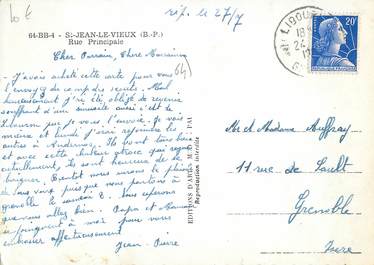 10 €
rép. le 27/7
64-BB-4 - St-JEAN-LE-VIEUX (B.-P.)
Rue Principale
64
Cher Parrain, Chère Marraine
J'avais acheté cette carte pour vous
l'envoyer de camp des scouts. Mal
heureusement j'ai été obligé de revenir
souffrant d'une sinusite aussi c'est de
que je vous l'envoie. Je vais
mieux et lundi j'irai rejoindre les
autres à Andernos. Ils sont bien
et avec cette chaleur qui règne
actuellement, ils sont heureux de se
baigner. Bientôt nous aurons le plaisir
de vous voir puisque nous partons à
Grenoble le samedi 2. Nous espérons
que vous allez bien. Papa et Maman
se joignent à moi pour vous
embrasser affectueusement
Jean-Pierre
Reproduction interdite
20F
POSTES
Mr et Madame Auffray
11 rue de Sault
Grenoble
Isère